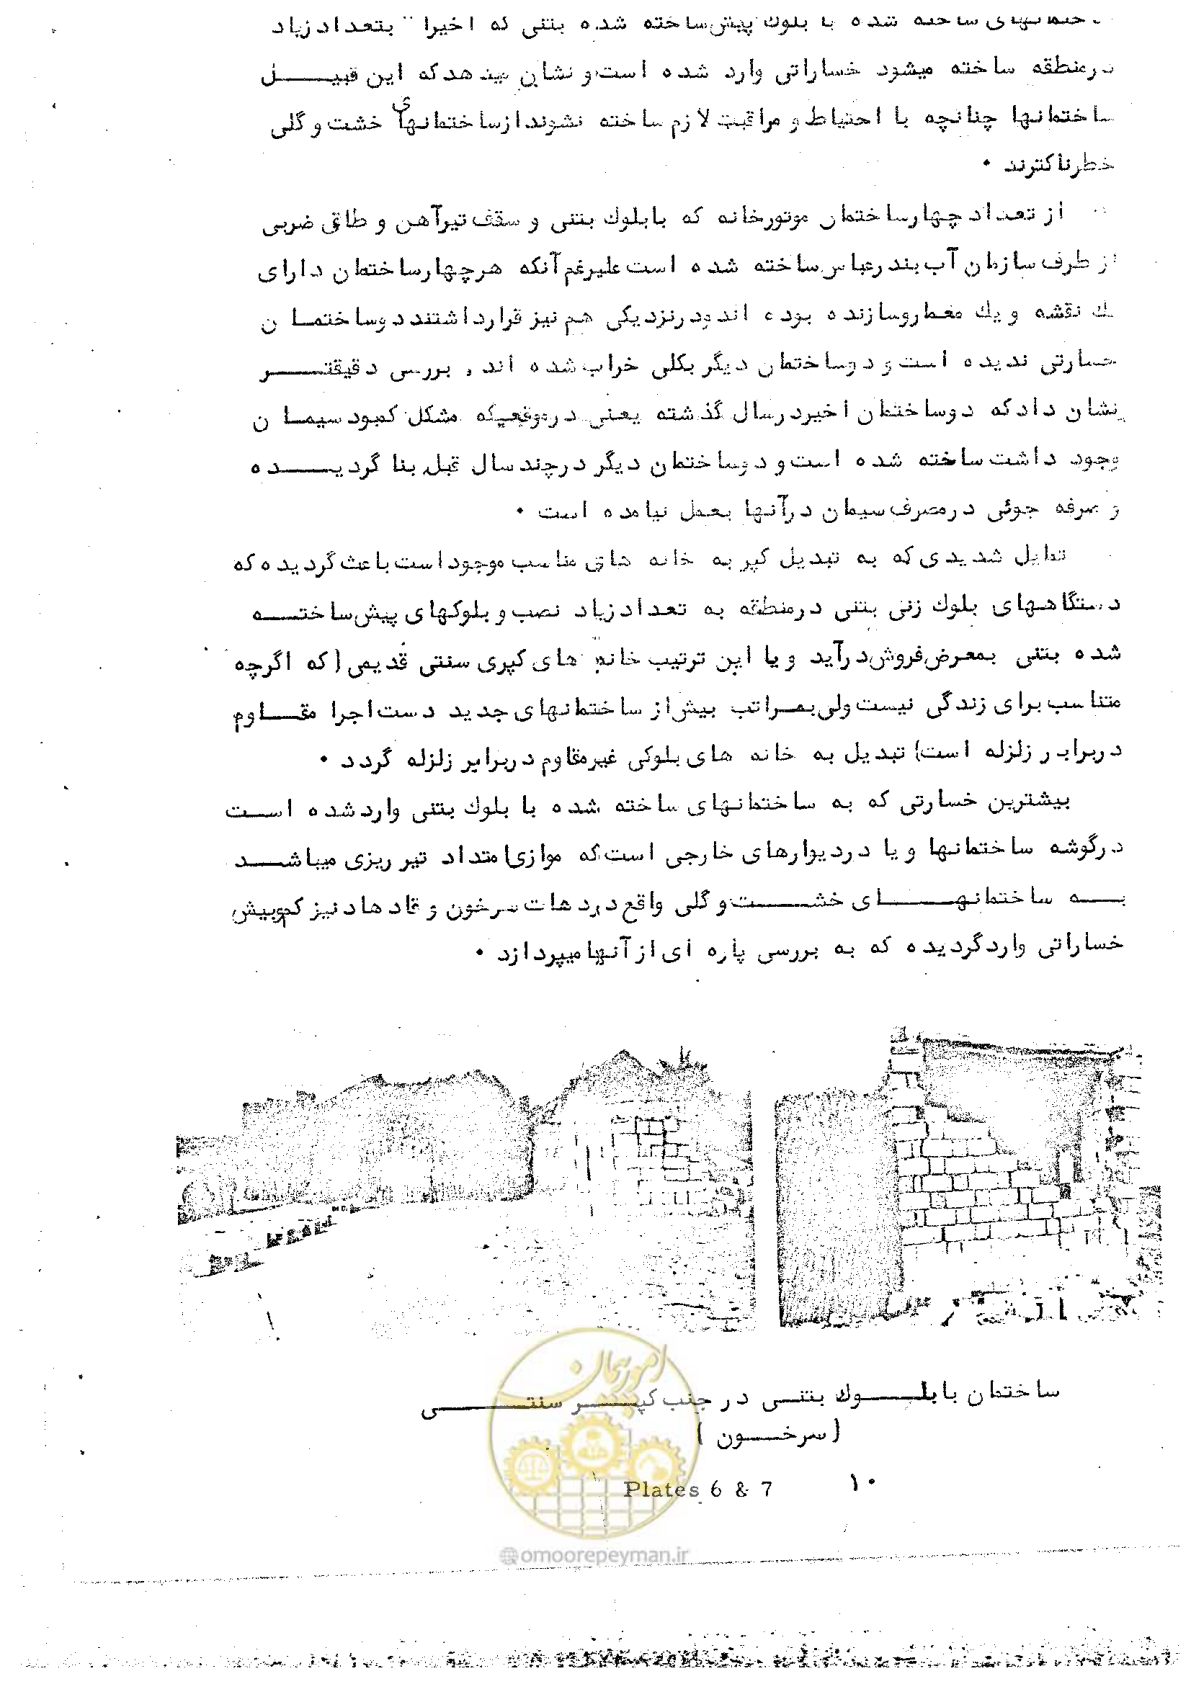 ساخته شده با بلوک پیش‌ساخته شده بتنی که اخیرا" بتعداد زیاد
درمنطقه ساخته میشود خساراتی وارد شده است و نشان میدهد که این قبیـــل
ساختمانها چنانچه با احتیاط و مراقبت لازم ساخته نشوند از ساختمانهای خشت و گلی
خطرناکترند .
از تعداد چهار ساختمان موتورخانه که بابلوک بتنی و سقف تیرآهن و طاق ضربی
از طرف سازمان آب بندرعباس ساخته شده است علیرغم آنکه هر چهارساختمان دارای
یک نقشه و یک معمار و سازنده بوده اند و درنزدیکی هم نیز قرارداشتند دوساختمـان
خسارتی ندیده است و دوساختمان دیگر بکلی خراب شده اند , بررسی دقیقتـــر
نشان داد که دوساختمان اخیر در سال گذشته یعنی درموقعیکه مشکل کمبود سیمـان
وجود داشت ساخته شده است و دوساختمان دیگر در چند سال قبل بنا گردیـــده
و صرفه جوئی درمصرف سیمان درآنها بعمل نیامده است .
تمایل شدیدی که به تبدیل کپر به خانه های مناسب موجود است باعث گردیده که
دستگاههای بلوک زنی بتنی درمنطقه به تعداد زیاد نصب و بلوکهای پیش ساختـــه
شده بتنی بمعرض فروش درآید و با این ترتیب خانه های کپری سنتی قدیمی (که اگرچه
متناسب برای زندگی نیست ولی بمراتب بیش از ساختمانهای جدید دست اجرا مقـــاوم
دربرابر زلزله است) تبدیل به خانه های بلوکی غیرمقاوم دربرابر زلزله گردد .
بیشترین خسارتی که به ساختمانهای ساخته شده با بلوک بتنی وارد شده اســت
درگوشه ساختمانها و یا در دیوارهای خارجی است که موازی امتداد تیر ریزی میباشـــد
بـــه ساختمانهـــای خشـــت و گلی واقع در دهات سرخون و قادهاد نیز کم و بیش
خساراتی وارد گردیده که به بررسی پاره ای از آنها میپردازد .
ساختمان با بلـــوک بتنـی در جنب کپـــر سنتـــی
( سرخـــون )
Plates 6 & 7
۱۰
امور پیمان
@omoorepeyman.ir